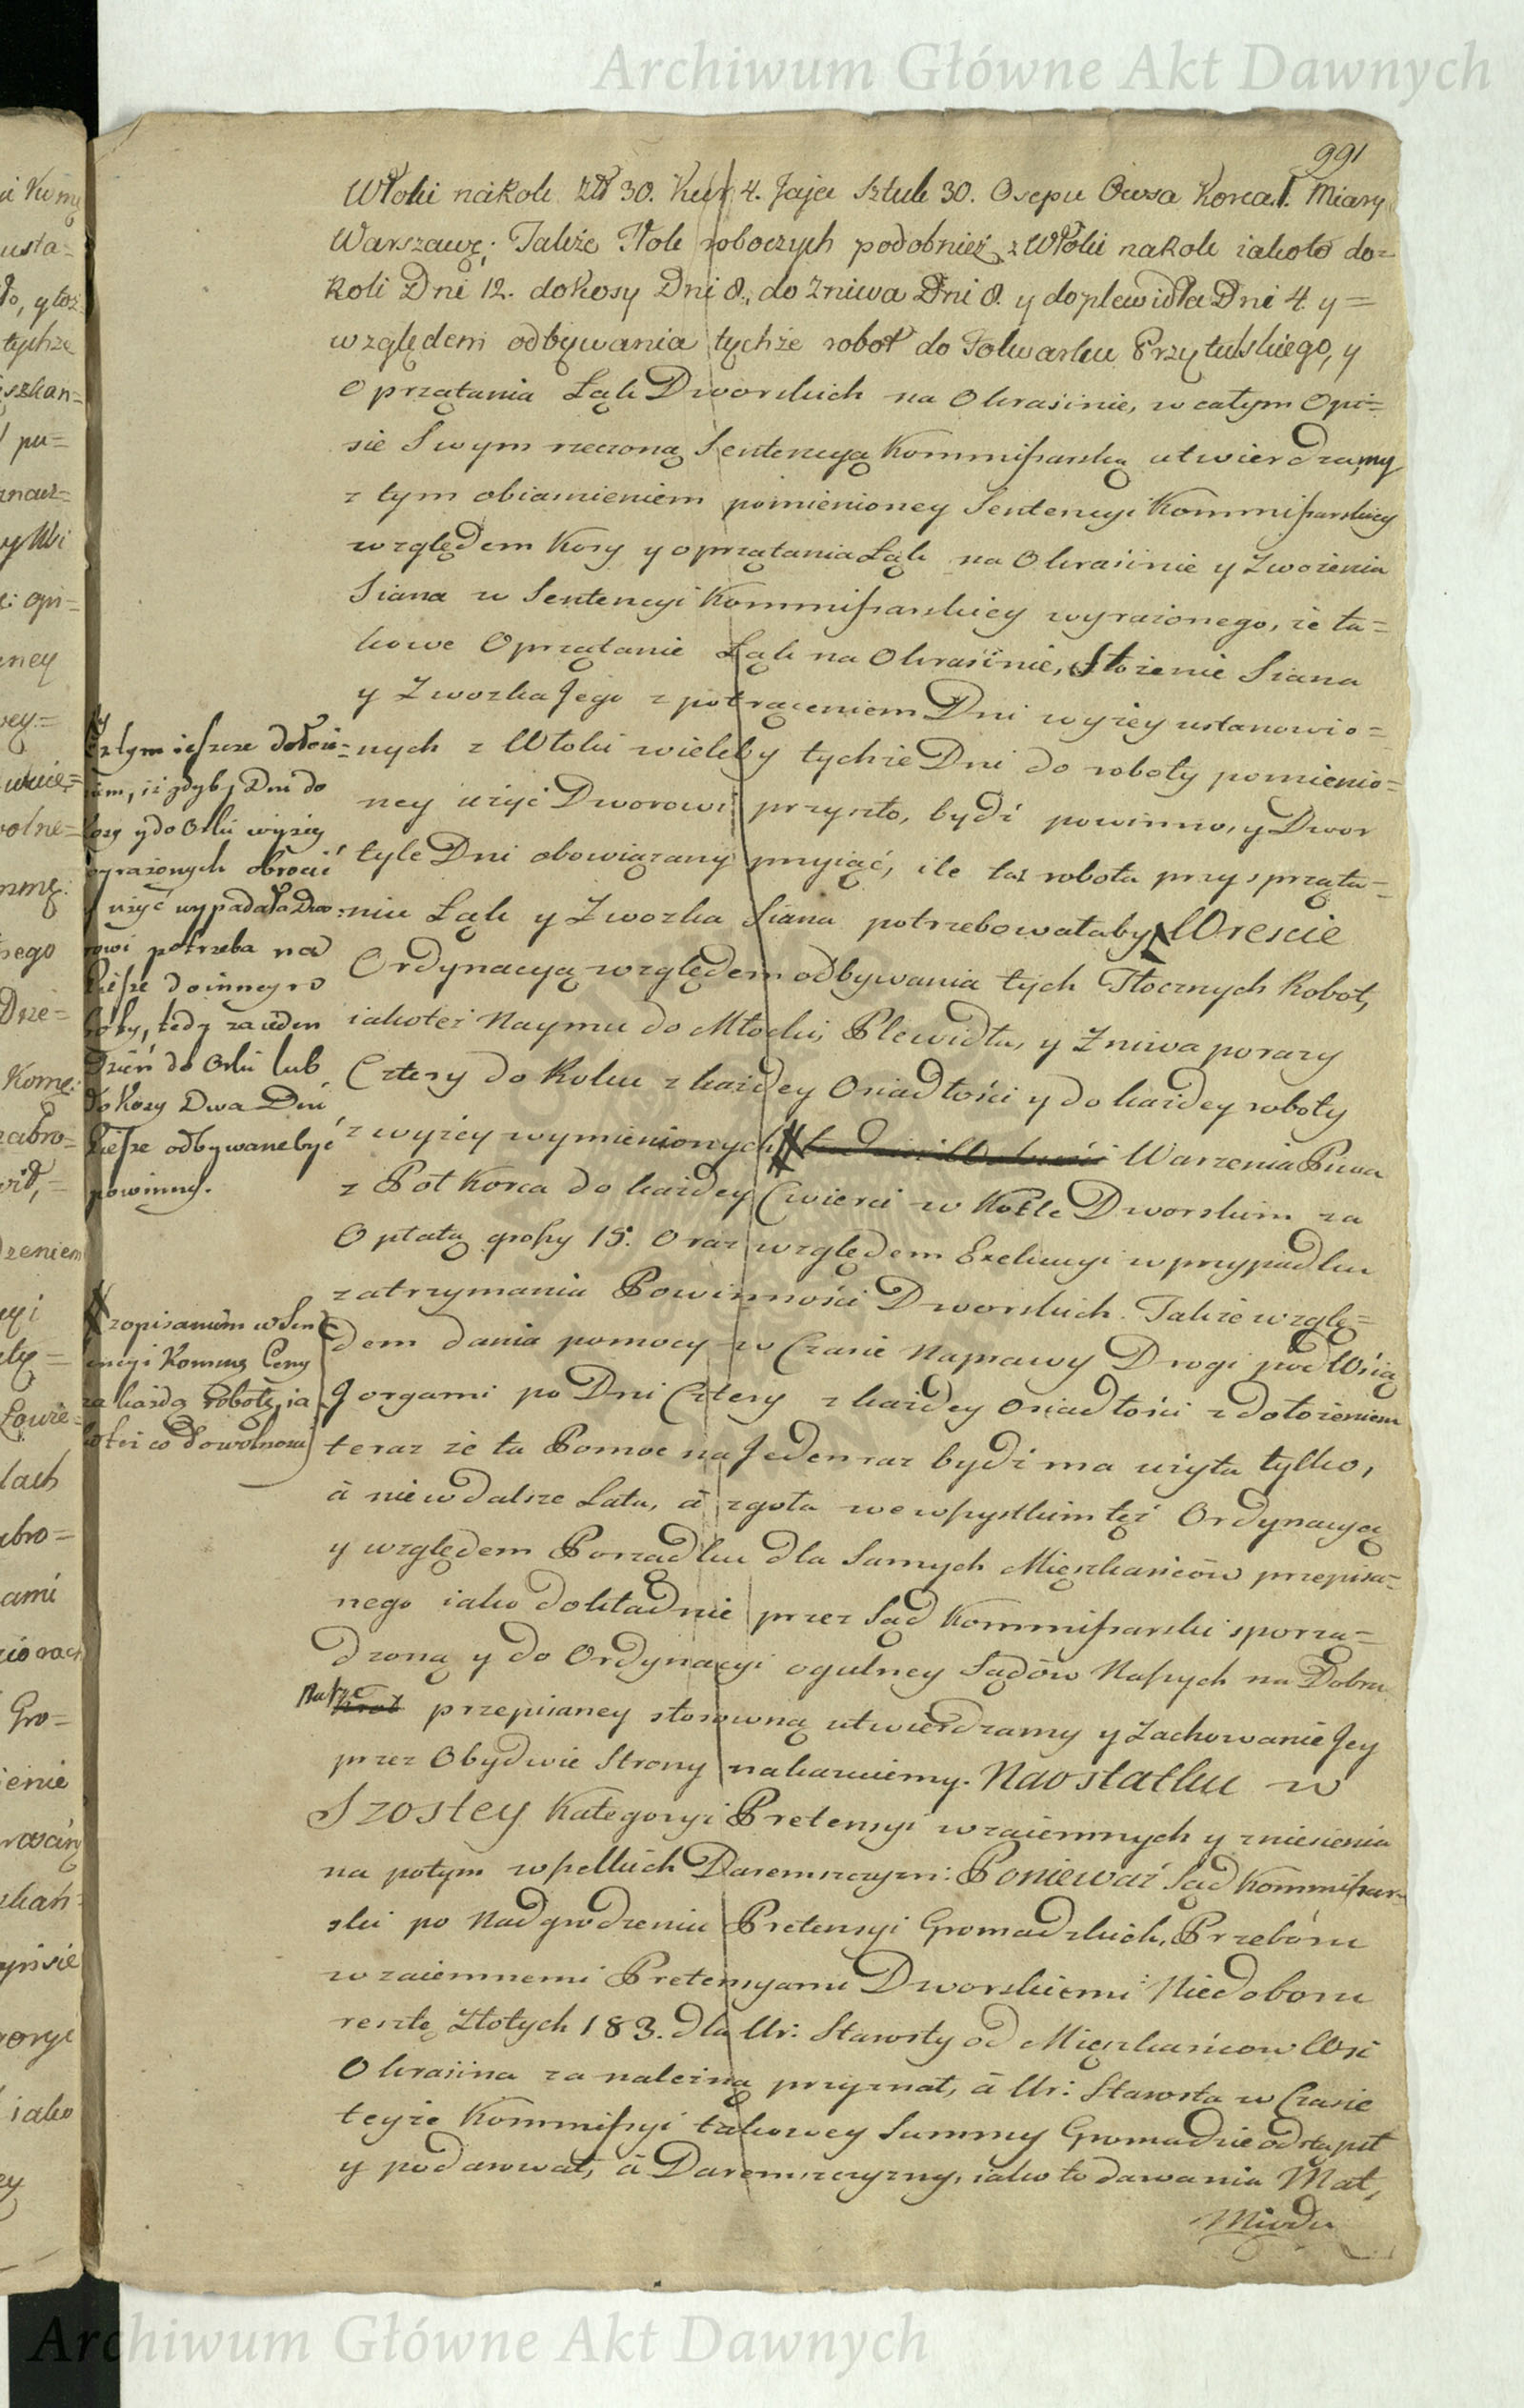 Archiwum Główne Akt Dawnych
991
Włoki na Rok Zł 30. Kur 4. Jaja Sztuk 30. Osepu Owsa Korca 1. Miary
Warszawę: Takze Tłok roboczych podobnież z Włoki na Rok iakoto do-
Roli Dni 12. do Kosy Dni 8., do Zniwa Dni 8. y do plewidła Dni 4. y =
względem odbywania tychże robot do Folwarku Przytulskiego, y
Oprzątania Łąk Dworskich na Okrasinie, w całym Opi=
sie Swym rzeczoną Sentencyą Kommissarską utwierdzamy
z tym obiaśnieniem pomienioney Sentencyi Kommissarskiey
względem Kosy y oprzątania Łąk na Okrasinie y Zwożenia
Siana w Sentencyi Kommissarskiey wyrażonego, że ta=
kowe Oprzątanie Łąk na Okrasinie, Złożenie Siana
y Zwozka Jego z potrąceniem Dni wyżey ustanowio=
nych z Włoki wieleby tychże Dni do roboty pomienio=
ney użyć Dworowi przyszło, bydź powinno, y Dwor
tyle Dni obowiązany przyiąć, ile taż robota przy sprząta=
niu Łąk y Zwozka Siana potrzebowałaby, Wreście
Ordynacyą względem odbywania tych Tłocznych Robot,
iakoteż Naymu do Młocki, Plewidła, y Zniwa po razy
Cztery do Roku z każdey Osiadłości y do każdey roboty
z wyżey wymienionych Warzenia Piwa
z Poł Korca do każdey Cwierci w Kotle Dworskim za
Opłatą groszy 15. Oraz względem Exekucyi w przypadku
zatrzymania Powinności Dworskich. Także wzglę=
dem dania pomocy w Czasie Naprawy Drogi pod Wsią
Jorgami po Dni Cztery z każdey Osiadłości z dołożeniem
teraz że ta Pomoc na Jeden raz bydź ma użyta tylko,
á nie w dalsze Lata, á zgoła we wszystkim też Ordynacyą
y względem Porządku dla Samych Mięszkańców przepisa=
nego iako dokładnie przez Sąd Kommissarski sporzą=
dzoną y do Ordynacyi ogulney Sądów Naszych na Dobra
Nasze przepisaney stosowną utwierdzamy y Zachowanie Jey
przez Obydwie Strony nakazuiemy. Naostatku w
Szostey Kategoryi Pretensyi wzaiemnych y zniesienia
na potym wszelkich Daremszczyzn: Ponieważ Sąd Kommissar=
ski po Nadgrodzeniu Pretensyi Gromadzkich, Przeboru
wzaiemnemi Pretensyami Dworskiemi: Niedoboru
resztę Złotych 183. dla Ur: Starosty od Mięszkańcow Wsi
Okrasina za należną przyznał, á Ur: Starosta w Czasie
teyże Kommissyi takowey Summy Gromadzie odstąpił
y podarował, á Daremszczyzny, iako to dawania Mat,
Miodu
z tym ieszcze dołoże=
niem, iż gdyby Dni do
Kosy y do Orki wyżey
wyrażonych obrocić
y użyć wypadała Dwo=
rowi potrzeba na
Piesze do inney ro
boty, tedy za ieden
Dzień do Orki lub
do Kosy Dwa Dni
Piesze odbywane być
powinny.
z opisaniem w Sen
tencyi Kommis Ceny
za każdą robotę, ia
koteż co do wolności
Archiwum Główne Akt Dawnych